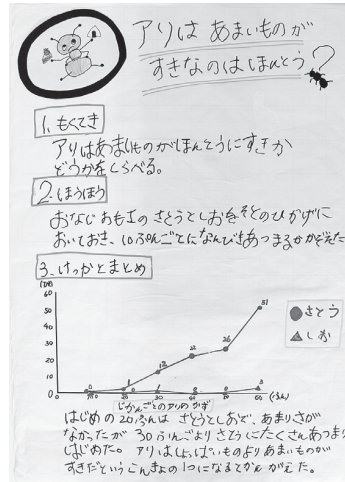 アリは あまいものが
すきなのは ほんとう?
1. もくてき
アリはあまいものがほんとうにすきか
どうかをしらべる。
2. ほうほう
おなじ おもさの さとうとしおをそとのひかげに
おいておき、10ぷんごとになんびきあつまるかかぞえた
3. けっかとまとめ
60
50
40
30
20
10
0
51
26
12
さとう
しお
(ふん)
じかんごとのアリのかず
はじめの20ぷんは さとうとしおで、あまりさが
なかったが 30ぷんごより さとうにたくさんあつまり
はじめた。アリはしょっぱいものよりあまいものが
すきだという こんきょの1つになるとかんがえた。